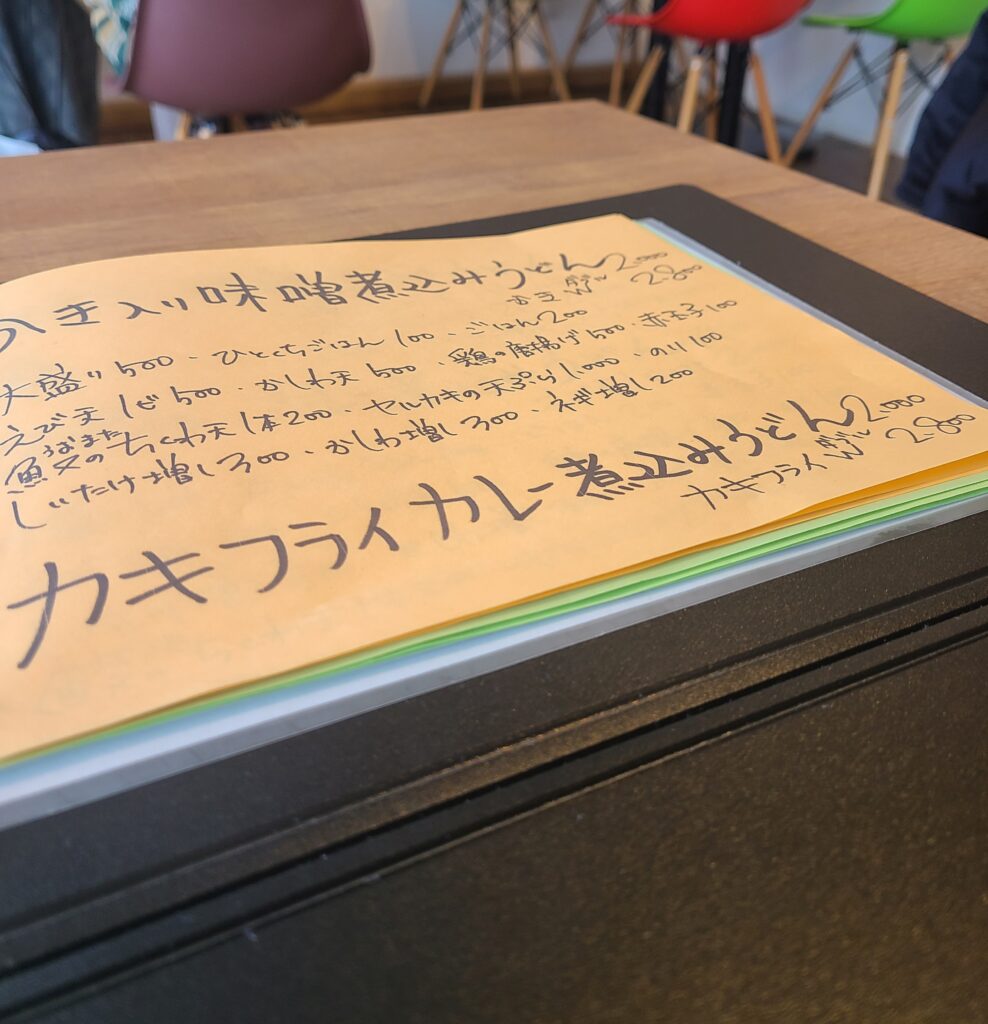 かき入り味噌煮込みうどん2.000
かきWダブル 2.800
大盛り500・ひとくちごはん100・ごはん200
えび天1ピ500・かしわ天500・鶏の唐揚げ500・赤玉子100
魚又のちくわ天1本200・セルカキの天ぷら1.000・のり100
しいたけ増し300・かしわ増し300・ネギ増し200
カキフライカレー煮込みうどん2.000
カキフライWダブル 2.800